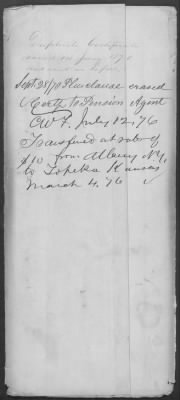 Duplicate Certificate
Sept 28/70 Plus clause erased
Certf. to Pension Agent
CWF. July 12, 76
Transferred at rate of
$10 from Albany N.Y.
to Topeka Kansas
March 4. 76